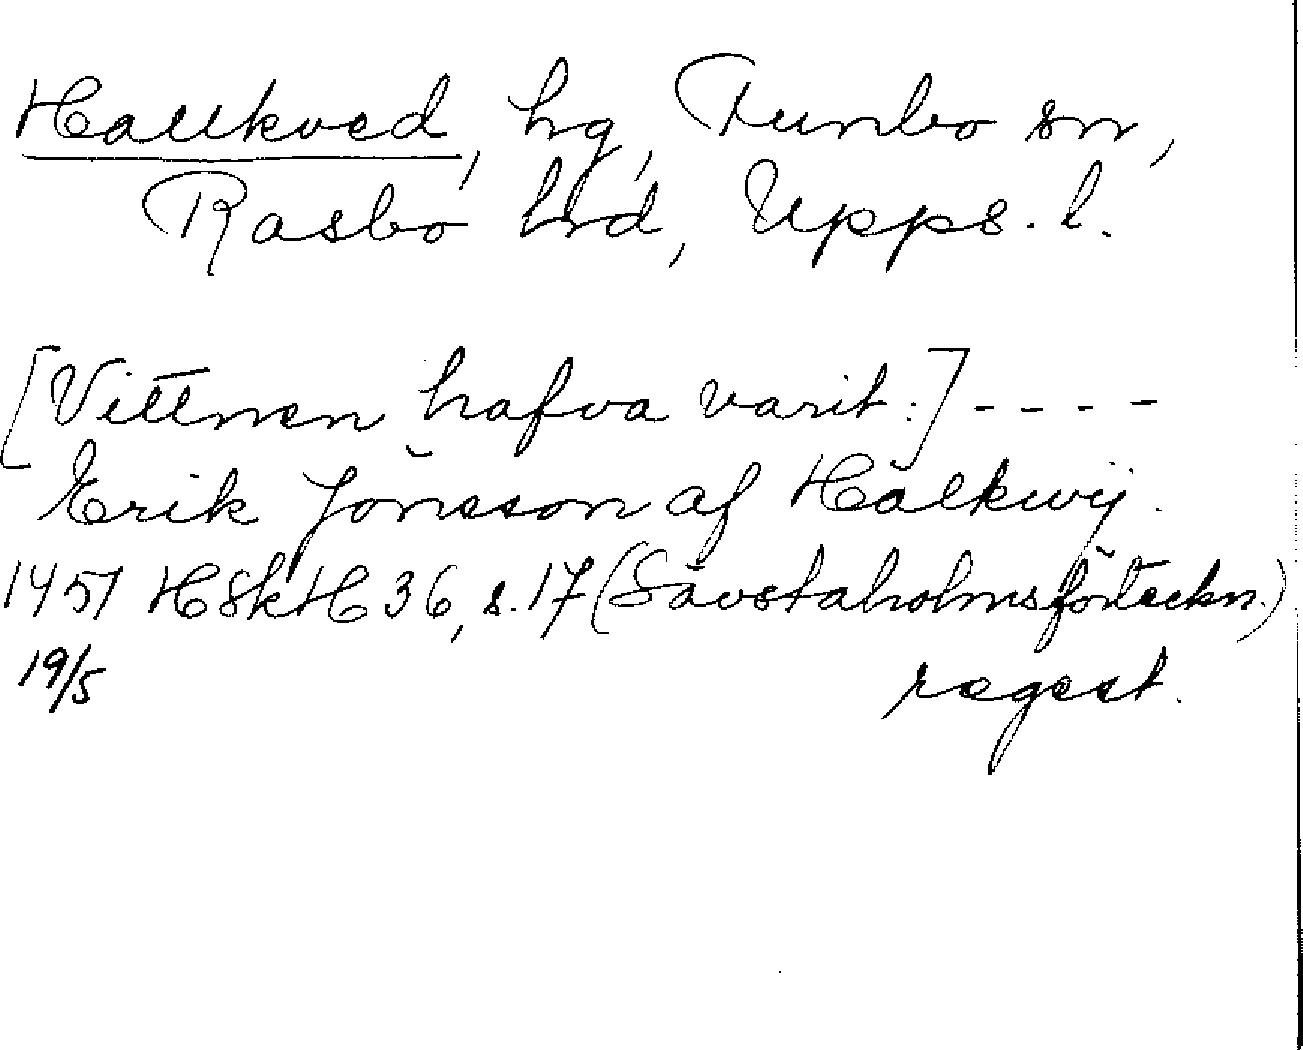 Hallkved, hg, Funbo sn,
Rasbo hd, Upps. l.
[Vittnen hafva varit:] - - - -
Erik Jönsson af Hälkwij.
1451 HSkH 36, s. 17 (Sävstaholmsförteckn.)
19/5 regest.